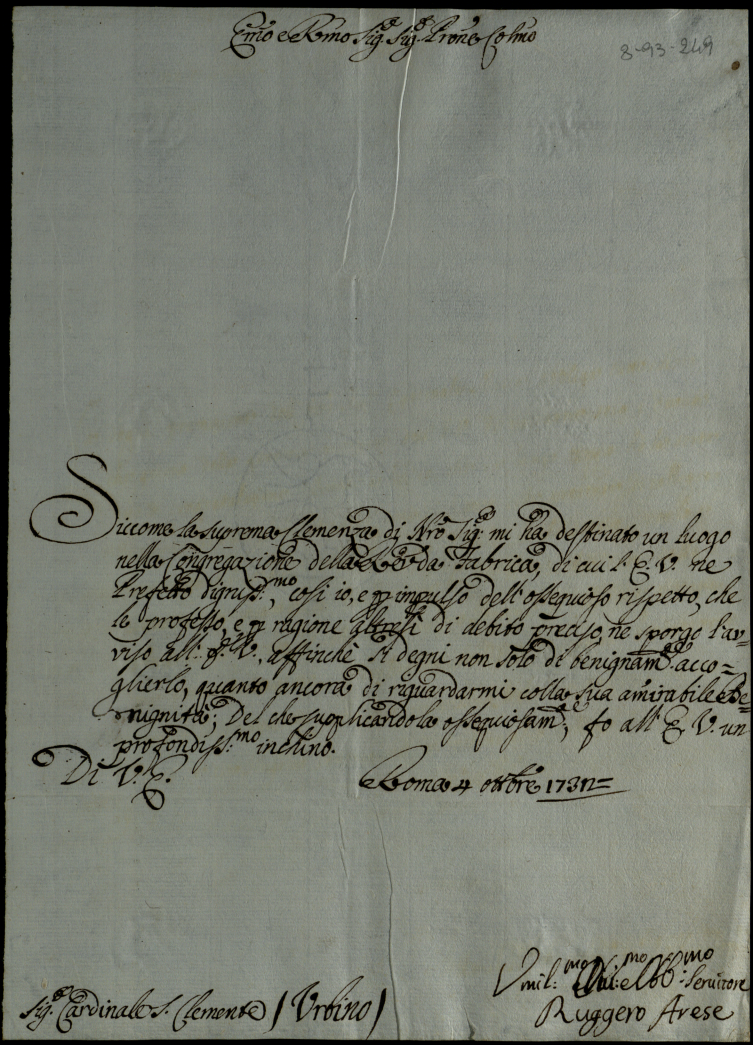 Em̃o e Rm̃o Sig.r Sig.r Pron̄e Colm̃o
8-93-249
Siccome la suprema Clemenza di Nr̃o Sig.re mi ha destinato un luogo
nella Congregazione della Rev.da Fabrica, di cui l'E. V. ne
Prefetto digniss.mo, così io, e p impulso dell'ossequioso rispetto, che
le professo, e p ragione altresì di debito preciso, ne sporgo l'av=
viso all'E. V., affinchè si degni non solo di benignam.te acco=
glierlo, quanto ancora di riguardarmi colla sua amirabile Be=
nignità; Del che supplicandola ossequiosam.te, fo all'E. V. un
profondiss.mo inchino.
Di V. E.
Roma 4 ottbr̃e
Umil.mo Obb.mo Servitore
Ruggero Arese
Sig.r Cardinale S. Clemente (Urbino)